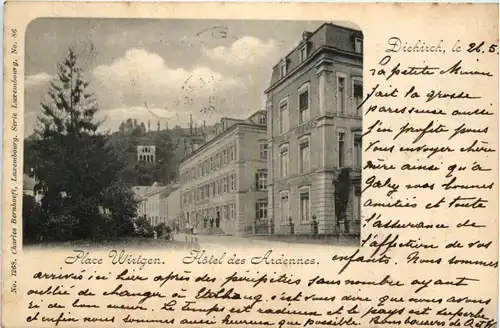 No. 1288. Charles Bernhoeft, Luxembourg. Serie Luxembourg. No. 86
Diekirch, le 26.5.
La petite Minou
fait la grosse
paresseuse aussi
j'en profite pour
vous envoyer chère
mère ainsi qu'a
Gaby mes bonnes
amitiés et toute
l'assurance de
l'affection de vos
enfants. Nous sommes
Place Wirtgen. Hôtel des Ardennes.
arrivés ici hier après des péripéties sans nombre ayant
oublié de changer à c'est vous dire que nous avons
ri de bon Le temps est radieux et le pays est superbe
et enfin nous sommes aussi heureux que possible. Bon